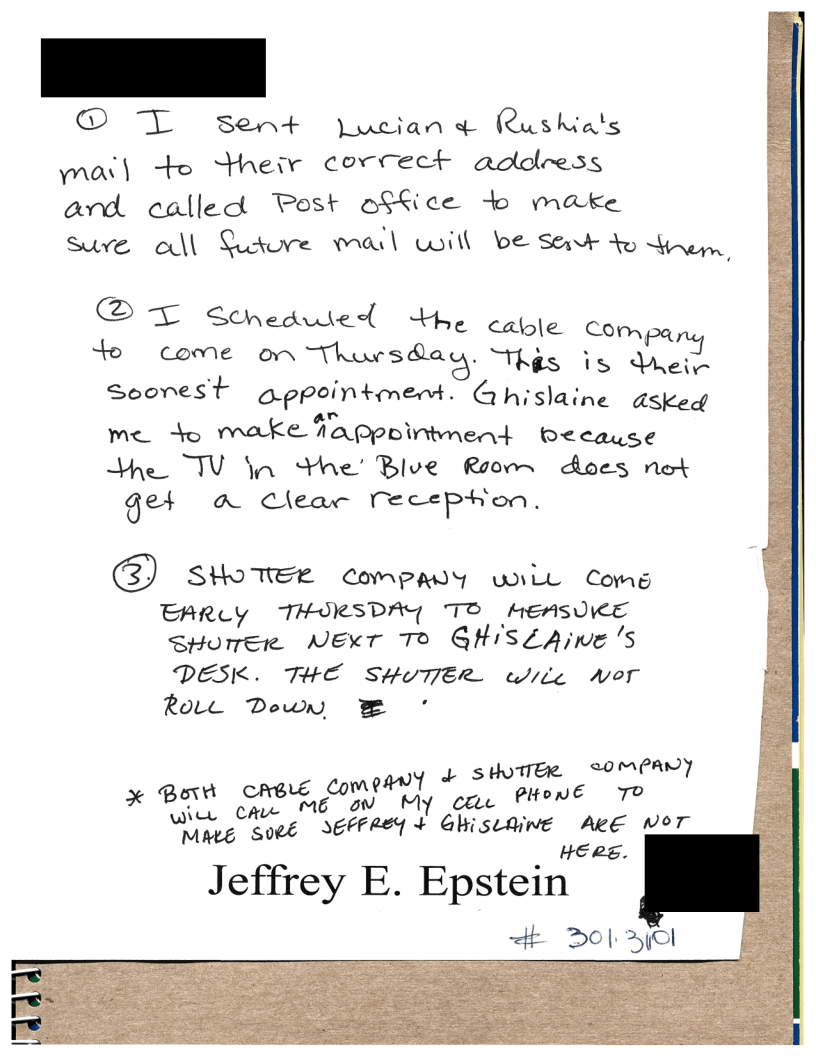 ① I sent Lucian & Rushia's
mail to their correct address
and called Post office to make
sure all future mail will be sent to them.
② I scheduled the cable company
to come on Thursday. This is their
soonest appointment. Ghislaine asked
me to make an appointment because
the TV in the Blue Room does not
get a clear reception.
③. SHUTTER COMPANY WILL COME
EARLY THURSDAY TO MEASURE
SHUTTER NEXT TO GHISLAINE'S
DESK. THE SHUTTER WILL NOT
ROLL DOWN.
* BOTH CABLE COMPANY & SHUTTER COMPANY
WILL CALL ME ON MY CELL PHONE TO
MAKE SURE JEFFREY & GHISLAINE ARE NOT
HERE.
Jeffrey E. Epstein